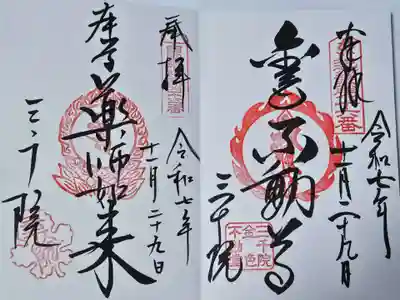 奉拝
令和七年
十一月二十九日
薬師如来
三千院
奉拝
令和七年
十一月二十九日
金色不動尊
三千院
三千院
金色
不動尊